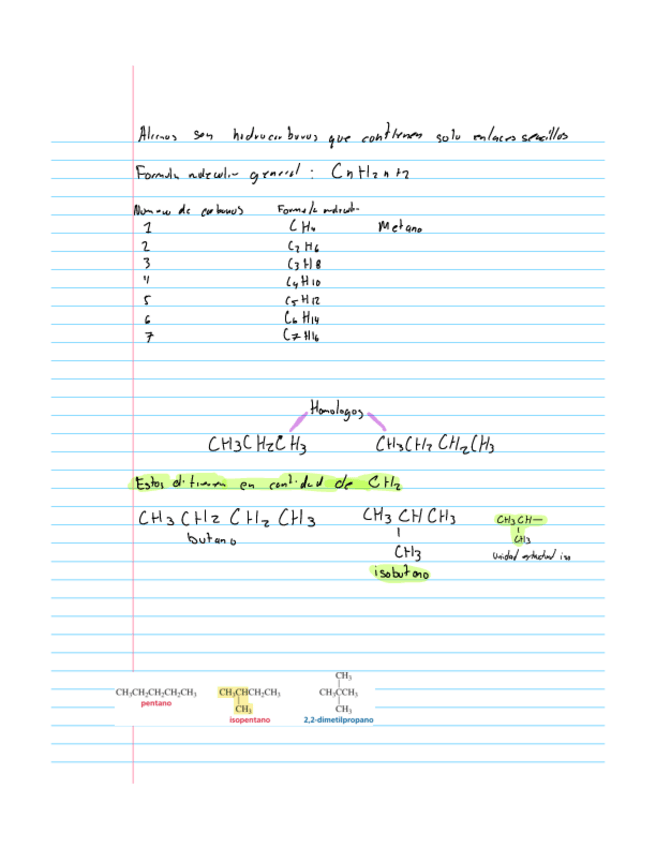 Alcanos son hidrocarburos que contienen solo enlaces sencillos
Formula molecular general : CnH2n+2
Numero de carbonos Formula molecular
1 CH4 Metano
2 C2H6
3 C3H8
4 C4H10
5 C5H12
6 C6H14
7 C7H16
Homologos
CH3CH2CH3 CH3CH2CH2CH3
Estos difieren en cantidad de CH2
CH3CH2CH2CH3 CH3CHCH3 CH3CH—
butano CH3 CH3
isobutano Unidad estructural iso
CH3
CH3CH2CH2CH2CH3 CH3CHCH2CH3 CH3CCH3
pentano CH3 CH3
isopentano 2,2-dimetilpropano